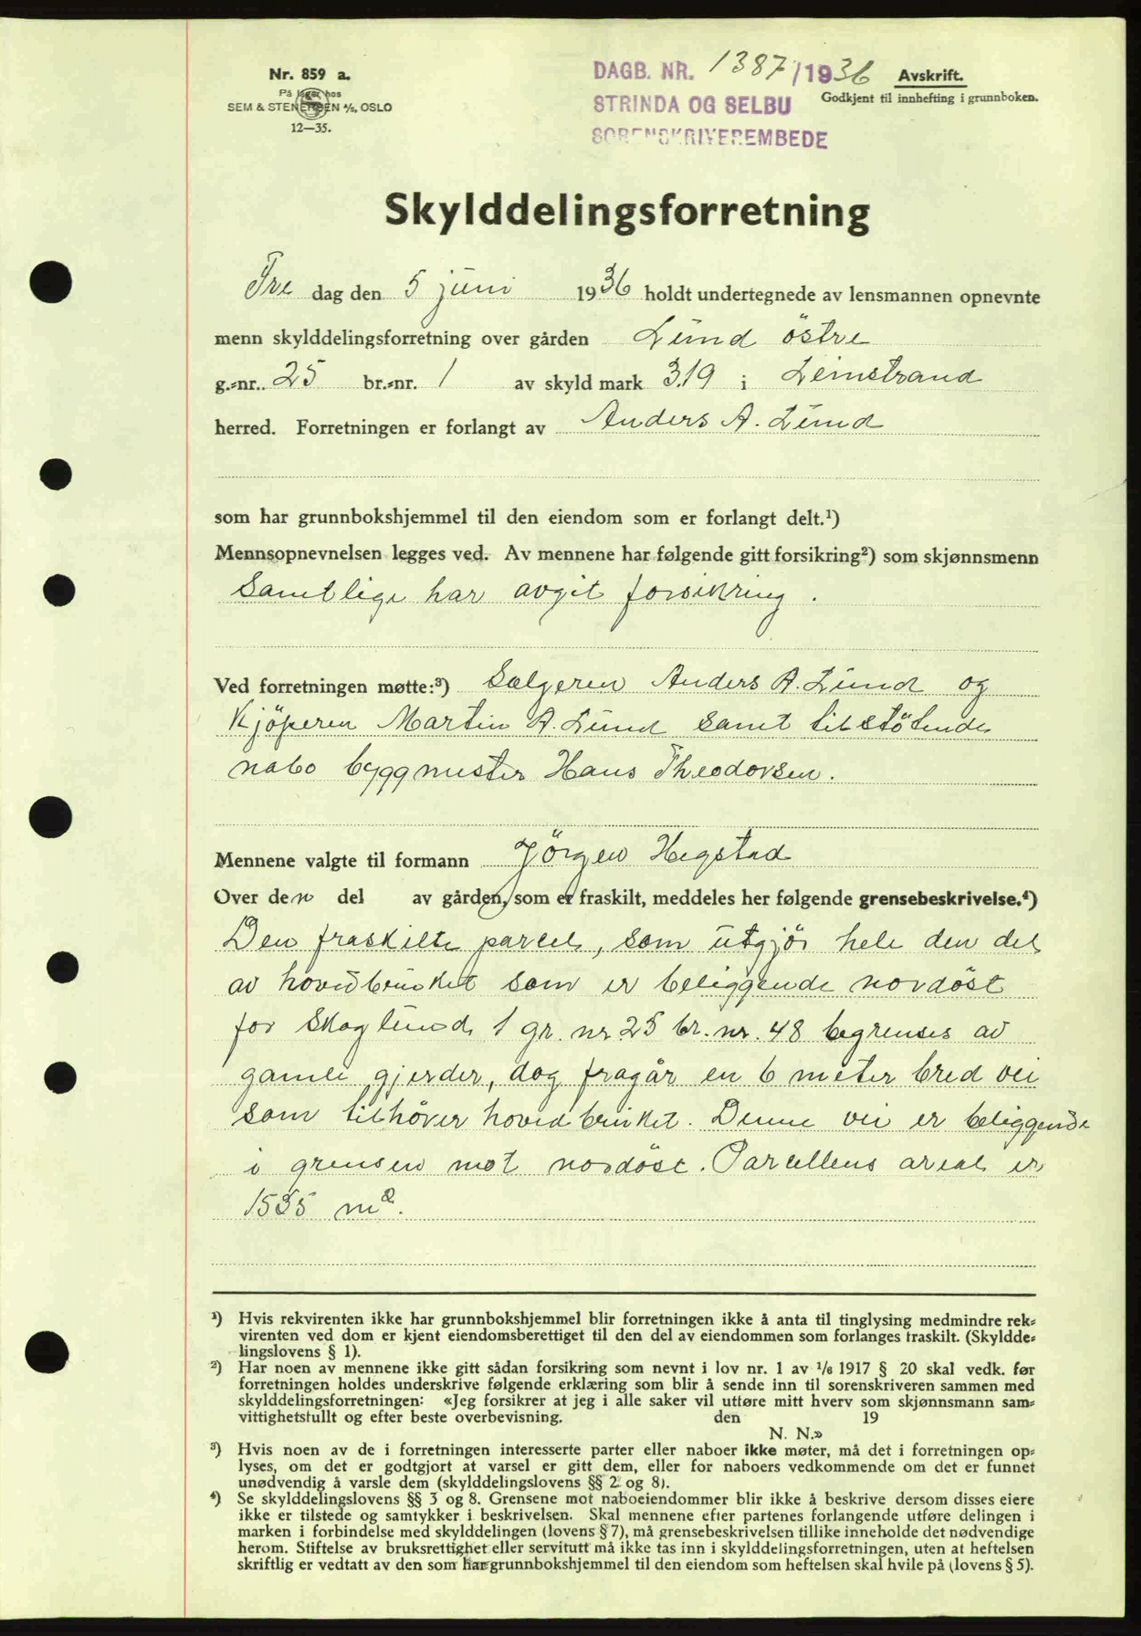 Nr. 859 a.
På lager hos
SEM & STENERSEN A/S, OSLO
12—35.
DAGB. NR. 1387/1936
STRINDA OG SELBU
SORENSKRIVEREMBEDE
Avskrift.
Godkjent til innhefting i grunnboken.
Skylddelingsforretning
Fre dag den 5 juni 1936 holdt undertegnede av lensmannen opnevnte
menn skylddelingsforretning over gården Lund östre
g.-nr. 25 br.-nr. 1 av skyld mark 3.19 i Leinstrand
herred. Forretningen er forlangt av Anders A. Lund
som har grunnbokshjemmel til den eiendom som er forlangt delt.¹)
Mennsopnevnelsen legges ved. Av mennene har følgende gitt forsikring²) som skjønnsmenn
Samtlige har avgit forsikring.
Ved forretningen møtte:³) Sælgeren Anders A. Lund og
Kjöperen Martin A. Lund samt tilstötende
nabo byggmester Hans Theodorsen.
Mennene valgte til formann Jörgen Hegstad
Over den del av gården, som er fraskilt, meddeles her følgende grensebeskrivelse.⁴)
Den fraskilte parcel, som utgjör hele den del
av hovedbruket som er beliggende nordöst
for Skoglund 1 gr. nr. 25 br. nr. 48 begrenses av
gamle gjerder, dog fragår en 6 meter bred vei
som tilhörer hovedbruket. Denne vei er beliggende
i grensen mot nordöst. Parcellens areal er
1535 m².
¹) Hvis rekvirenten ikke har grunnbokshjemmel blir forretningen ikke å anta til tinglysing medmindre rek-
virenten ved dom er kjent eiendomsberettiget til den del av eiendommen som forlanges fraskilt. (Skyldde-
lingslovens § 1).
²) Har noen av mennene ikke gitt sådan forsikring som nevnt i lov nr. 1 av 1/6 1917 § 20 skal vedk. før
forretningen holdes underskrive følgende erklæring som blir å sende inn til sorenskriveren sammen med
skylddelingsforretningen: «Jeg forsikrer at jeg i alle saker vil utføre mitt hverv som skjønnsmann sam-
vittighetsfullt og efter beste overbevisning. den 19
N. N.»
³) Hvis noen av de i forretningen interesserte parter eller naboer ikke møter, må det i forretningen op-
lyses, om det er godtgjort at varsel er gitt dem, eller for naboers vedkommende om det er funnet
unødvendig å varsle dem (skylddelingslovens §§ 2 og 8).
⁴) Se skylddelingslovens §§ 3 og 8. Grensene mot naboeiendommer blir ikke å beskrive dersom disses eiere
ikke er tilstede og samtykker i beskrivelsen. Skal mennene efter partenes forlangende utføre delingen i
marken i forbindelse med skylddelingen (lovens § 7), må grensebeskrivelsen tillike inneholde det nødvendige
herom. Stiftelse av bruksrettighet eller servitutt må ikke tas inn i skylddelingsforretningen, uten at heftelsen
skriftlig er vedtatt av den som har grunnbokshjemmel til den eiendom som heftelsen skal hvile på (lovens § 5).